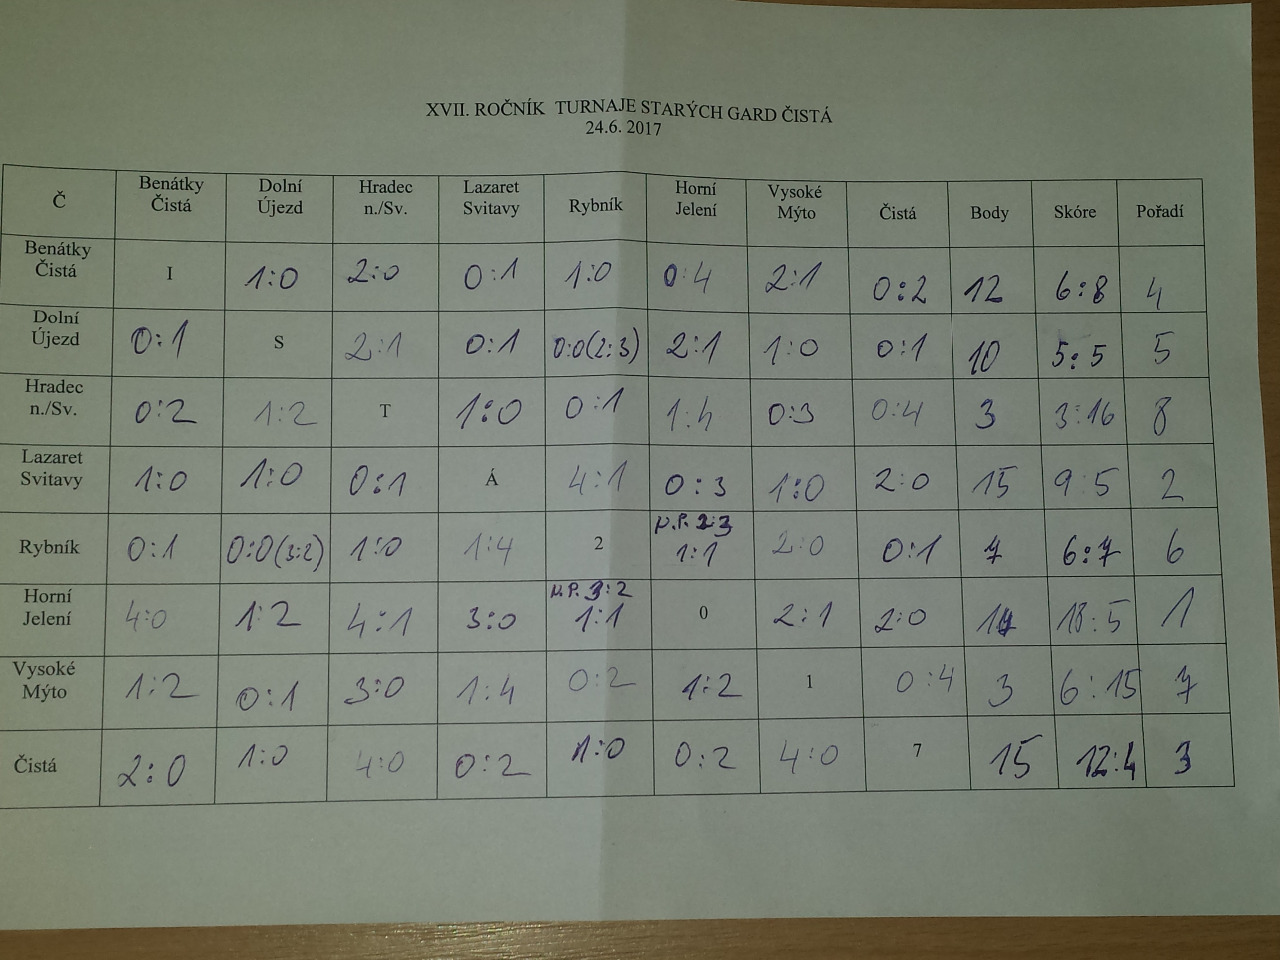 XVII. ROČNÍK TURNAJE STARÝCH GARD ČISTÁ
24.6. 2017
Č Benátky Čistá Dolní Újezd Hradec n./Sv. Lazaret Svitavy Rybník Horní Jelení Vysoké Mýto Čistá Body Skóre Pořadí
Benátky Čistá I 1:0 2:0 0:1 1:0 0:4 2:1 0:2 12 6:8 4
Dolní Újezd 0:1 S 2:1 0:1 0:0(2:3) 2:1 1:0 0:1 10 5:5 5
Hradec n./Sv. 0:2 1:2 T 1:0 0:1 1:4 0:3 0:4 3 3:16 8
Lazaret Svitavy 1:0 1:0 0:1 Á 4:1 0:3 1:0 2:0 15 9:5 2
Rybník 0:1 0:0(3:2) 1:0 1:4 2 N.P. 2:3 1:1 2:0 0:1 7 6:7 6
Horní Jelení 4:0 1:2 4:1 3:0 N.P. 3:2 1:1 0 2:1 2:0 18:5 1
Vysoké Mýto 1:2 0:1 3:0 1:4 0:2 1:2 1 0:4 3 6:15 7
Čistá 2:0 1:0 4:0 0:2 1:0 0:2 4:0 7 15 12:4 3